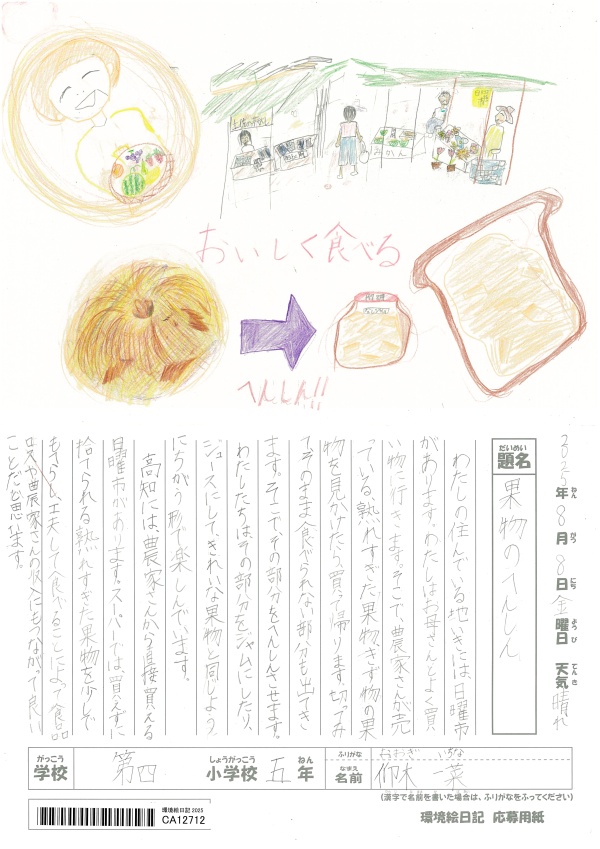 おいしく食べる
みかん
へんしん!!
2025年8月8日金曜日 天気 晴れ
ねん がつ にち ようび てんき
だいめい
題名
果物のへんしん
わたしの住んでいる地いきには、日曜市
があります。わたしはお母さんとよく買
い物に行きます。そこで、農家さんが売
っている、熟れすぎた果物、きず物の果
物を見かけたら買って帰ります。切ってみ
てそのまま食べられない部分も出てき
ます。そこで、その部分をへんしんさせます。
わたしたちは、その部分をジャムにしたり、
ジュースにして、きれいな果物と同じよう
にちがう形で楽しんでいます。
高知には、農家さんから直接買える
日曜市があります。スーパーでは買えずに
捨てられる熟れすぎた果物を少しで
もへらし、工夫して食べることによって食品
ロスや農家さんの収入にもつながって良い
ことだと思います。
がっこう しょうがっこう ねん ふりがな おおぎ いちな
学校 第四 小学校 五年 なまえ 名前 仰木 一菜
(漢字で名前を書いた場合は、ふりがなをふってください)
環境絵日記2025
CA12712
環境絵日記 応募用紙